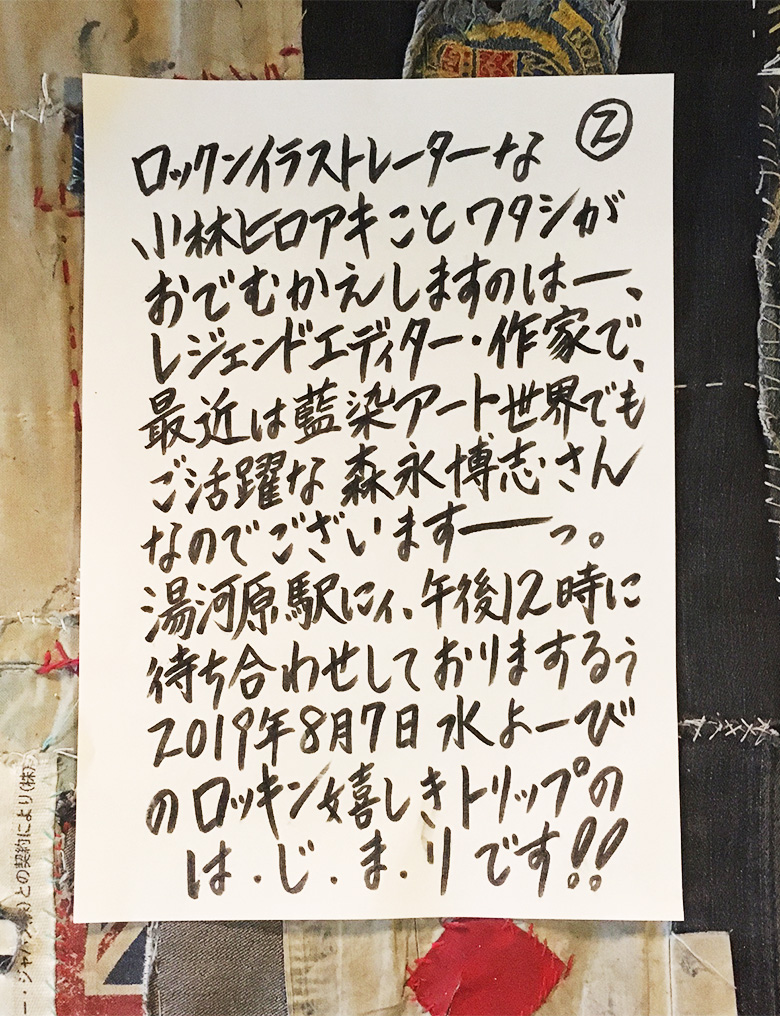 ②
ロックンイラストレーターな
小林ヒロアキことワタシが
おでむかえしますのはー、
レジェンドエディター・作家で、
最近は藍染アート世界でも
ご活躍な森永博志さん
なのでございますーーっ。
湯河原駅にィ、午後12時に
待ち合わせしておりまするぅ
2019年8月7日水よーび
のロッキン嬉しきトリップの
は.じ.ま.りです!!
との契約により(株)